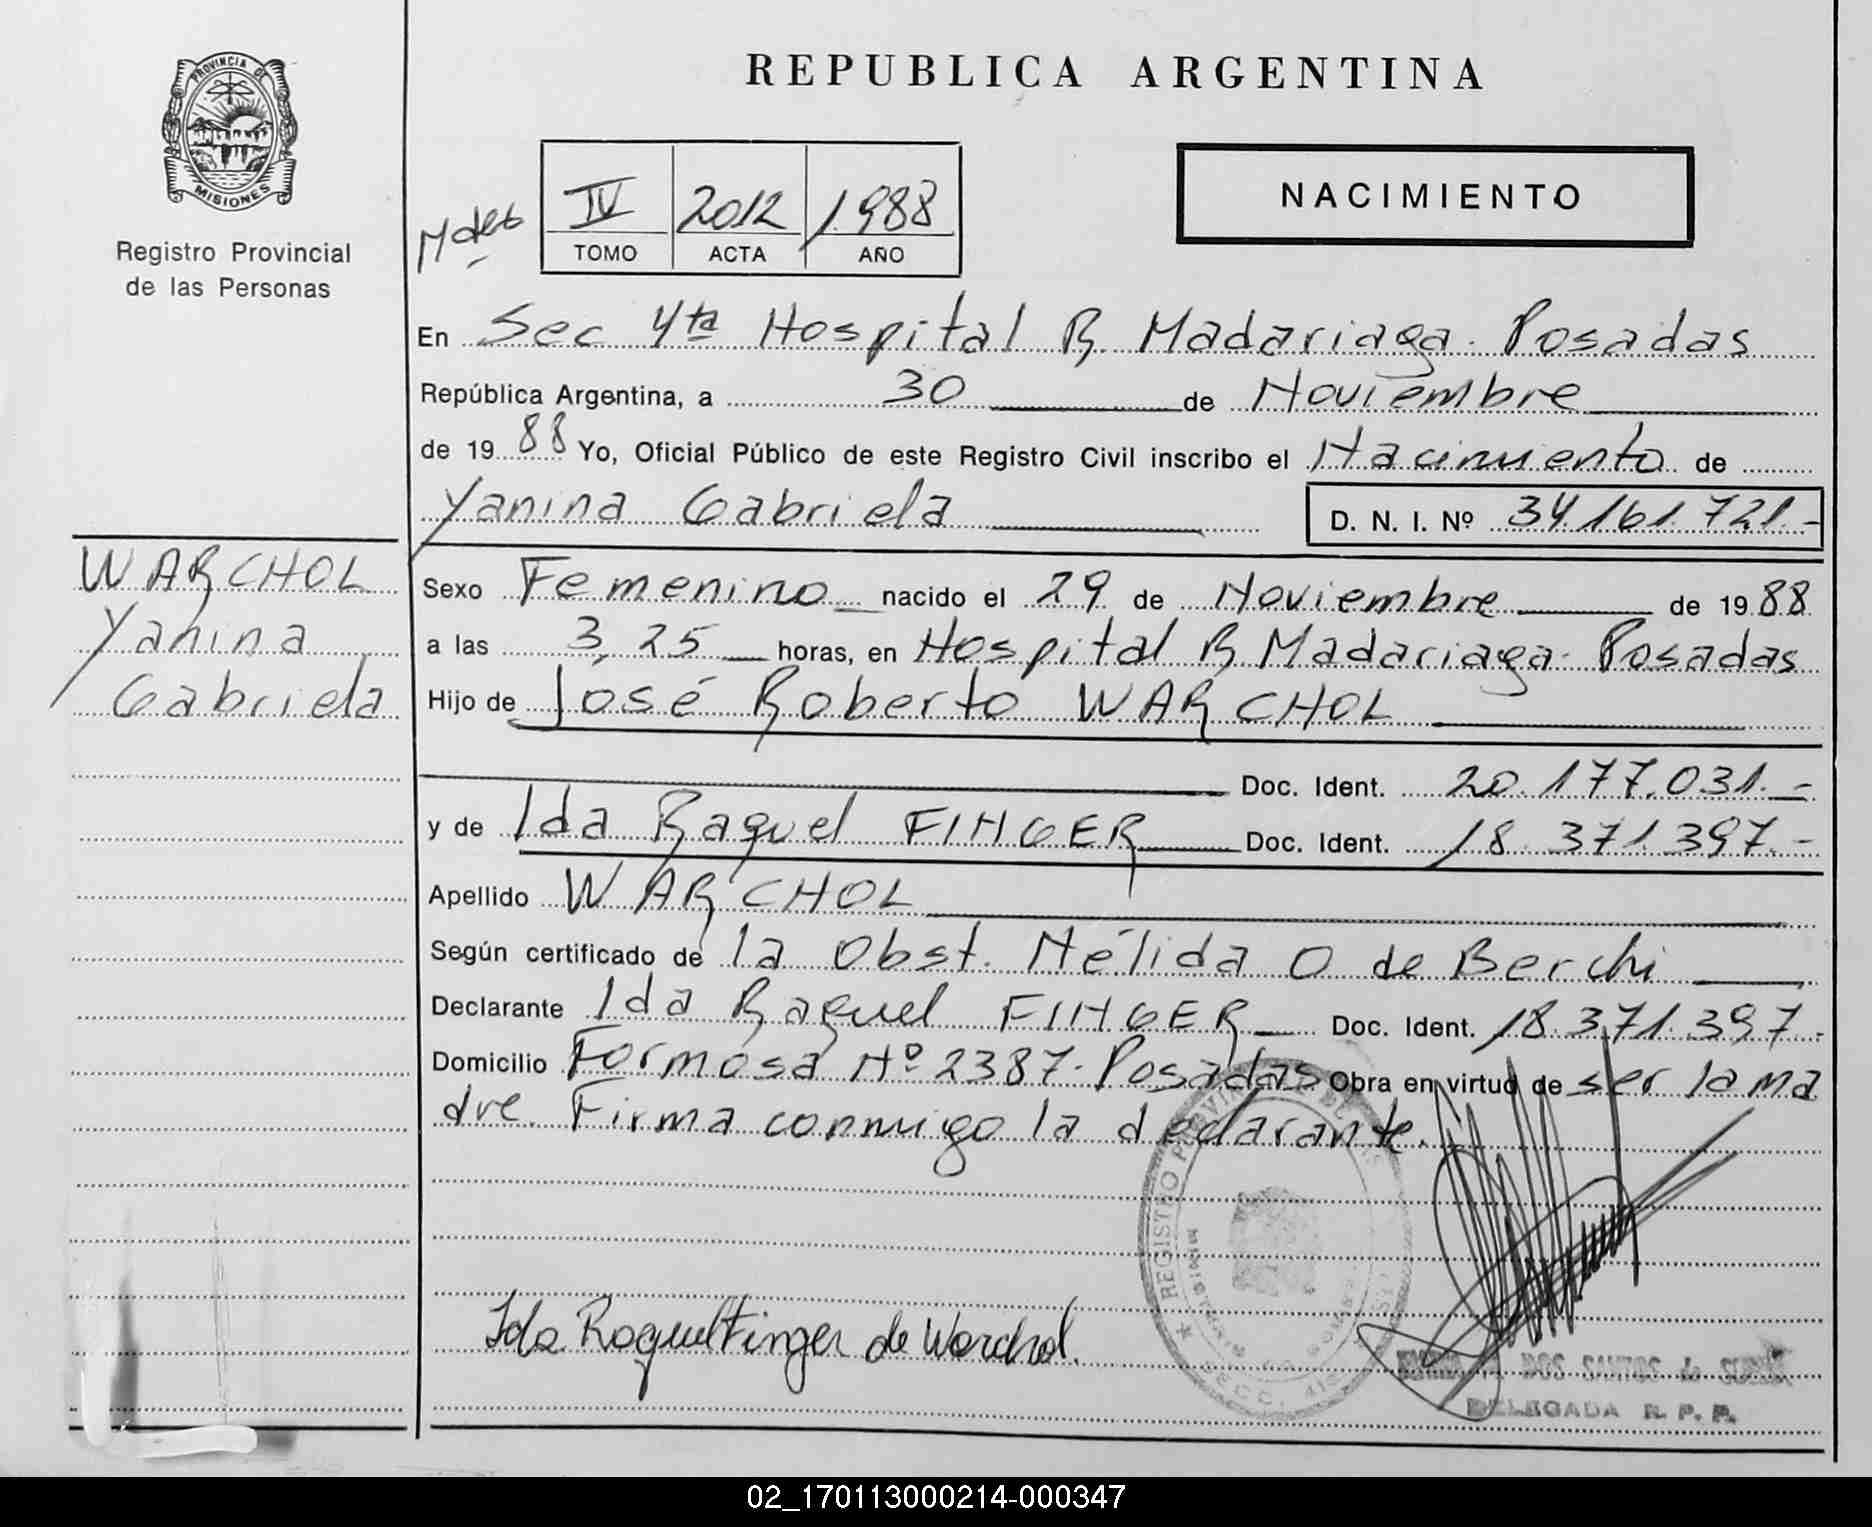 PROVINCIA DE
MISIONES
Registro Provincial
de las Personas
REPUBLICA ARGENTINA
IV 2012 1988
TOMO ACTA AÑO
NACIMIENTO
En Sec 4ta Hospital R. Madariaga. Posadas
República Argentina, a 30 de Noviembre
de 1988 Yo, Oficial Público de este Registro Civil inscribo el Nacimiento de
Yanina Gabriela D. N. I. Nº 34.161.721.-
WARCHOL
Yanina
Gabriela
Sexo Femenino nacido el 29 de Noviembre de 1988
a las 3,25 horas, en Hospital R. Madariaga. Posadas
Hijo de José Roberto WARCHOL
Doc. Ident. 20.177.031.-
y de Ida Raquel FINGER Doc. Ident. 18.371.397.-
Apellido WARCHOL
Según certificado de la Obst. Nélida O de Berchi
Declarante Ida Raquel FINGER Doc. Ident. 18.371.397.-
Domicilio Formosa Nº 2387. Posadas Obra en virtud de ser la ma
dre. Firma conmigo la declarante.
Ida Raquel Finger de Warchol.
DOS SANTOS de
DELEGADA R. P. P.
02_170113000214-000347